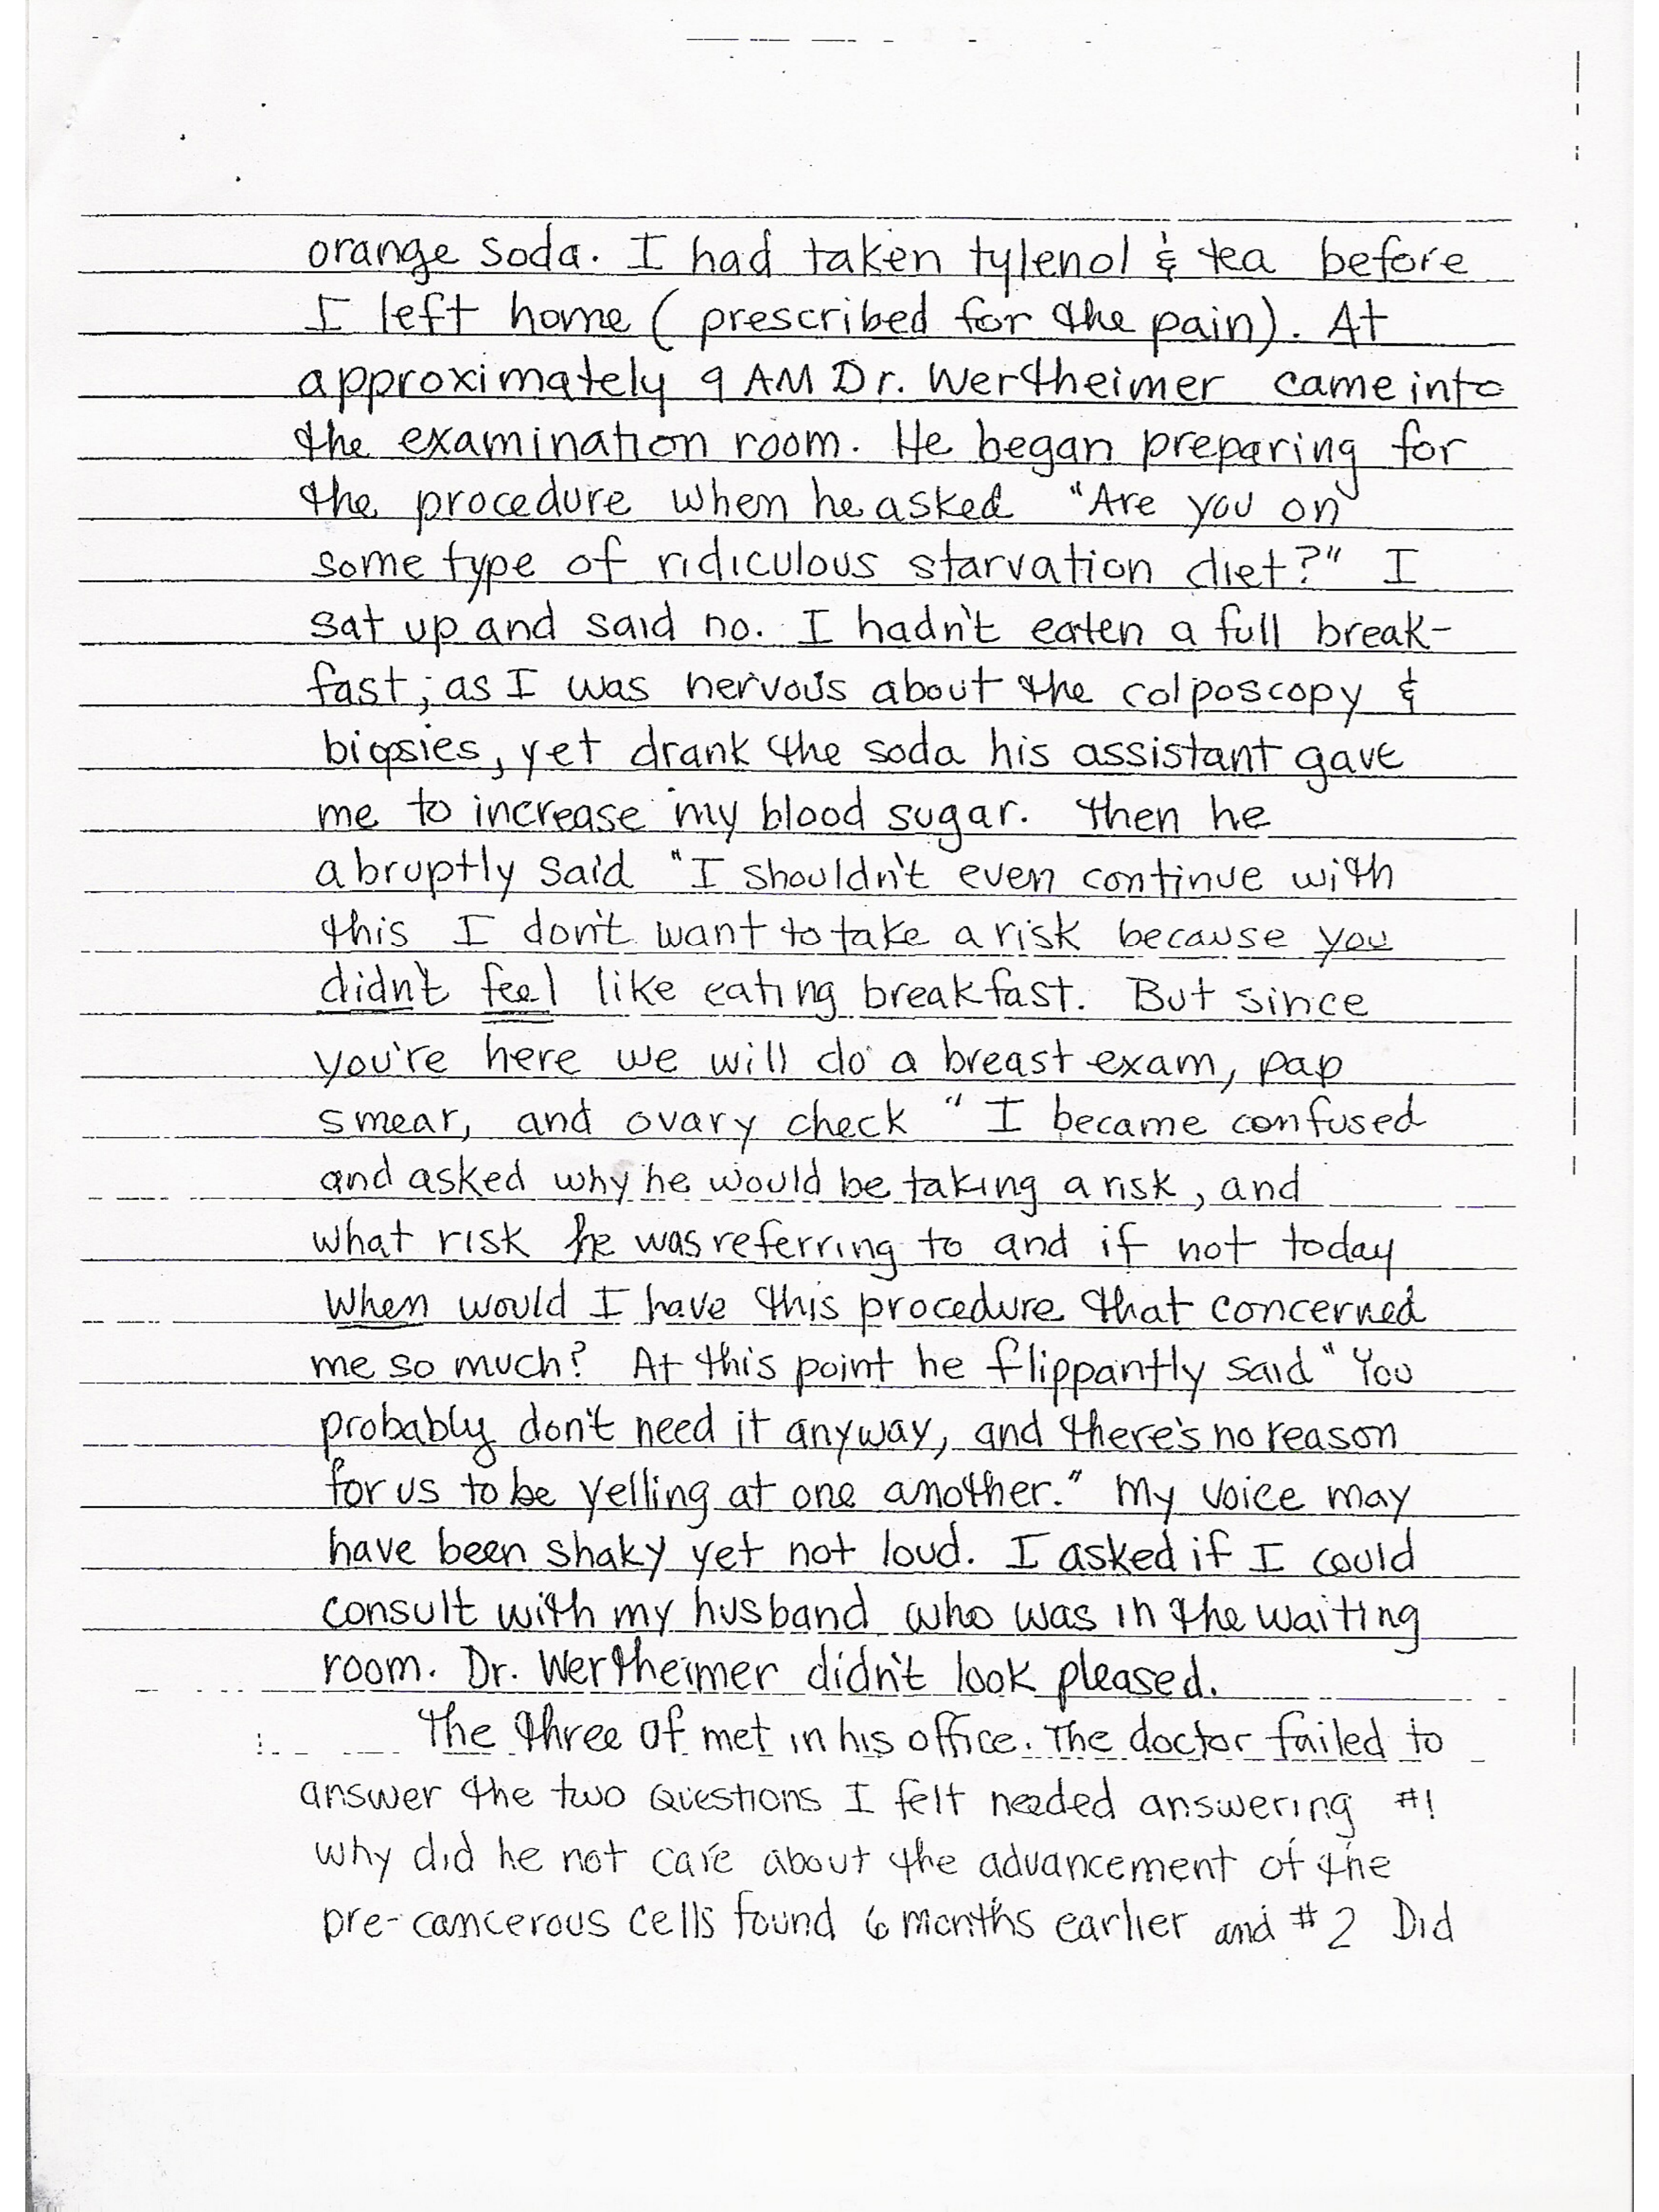 orange soda. I had taken tylenol & tea before
I left home (prescribed for the pain). At
approximately 9 AM Dr. Wertheimer came into
the examination room. He began preparing for
the procedure when he asked "Are you on
some type of ridiculous starvation diet?" I
sat up and said no. I hadn't eaten a full break-
fast, as I was nervous about the colposcopy &
biopsies, yet drank the soda his assistant gave
me to increase my blood sugar. Then he
abruptly said "I shouldn't even continue with
this I don't want to take a risk because you
didn't feel like eating breakfast. But since
you're here we will do a breast exam, pap
smear, and ovary check" I became confused
and asked why he would be taking a risk, and
what risk he was referring to and if not today
when would I have this procedure that concerned
me so much? At this point he flippantly said "You
probably don't need it anyway, and there's no reason
for us to be yelling at one another." My voice may
have been shaky yet not loud. I asked if I could
consult with my husband who was in the waiting
room. Dr. Wertheimer didn't look pleased.
The three of met in his office. The doctor failed to
answer the two questions I felt needed answering #1
why did he not care about the advancement of the
pre-cancerous cells found 6 months earlier and #2 Did